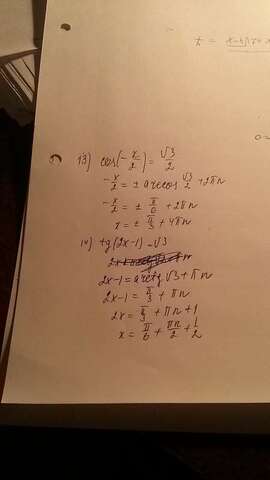 13) cos(-x/2) = √3/2
-x/2 = ± arccos √3/2 + 2πn
-x/2 = ± π/6 + 2πn
x = ± π/3 + 4πn
14) tg(2x-1) = √3
2x-1 = arctg √3 + πn
2x-1 = π/3 + πn
2x = π/3 + πn + 1
x = π/6 + πn/2 + 1/2